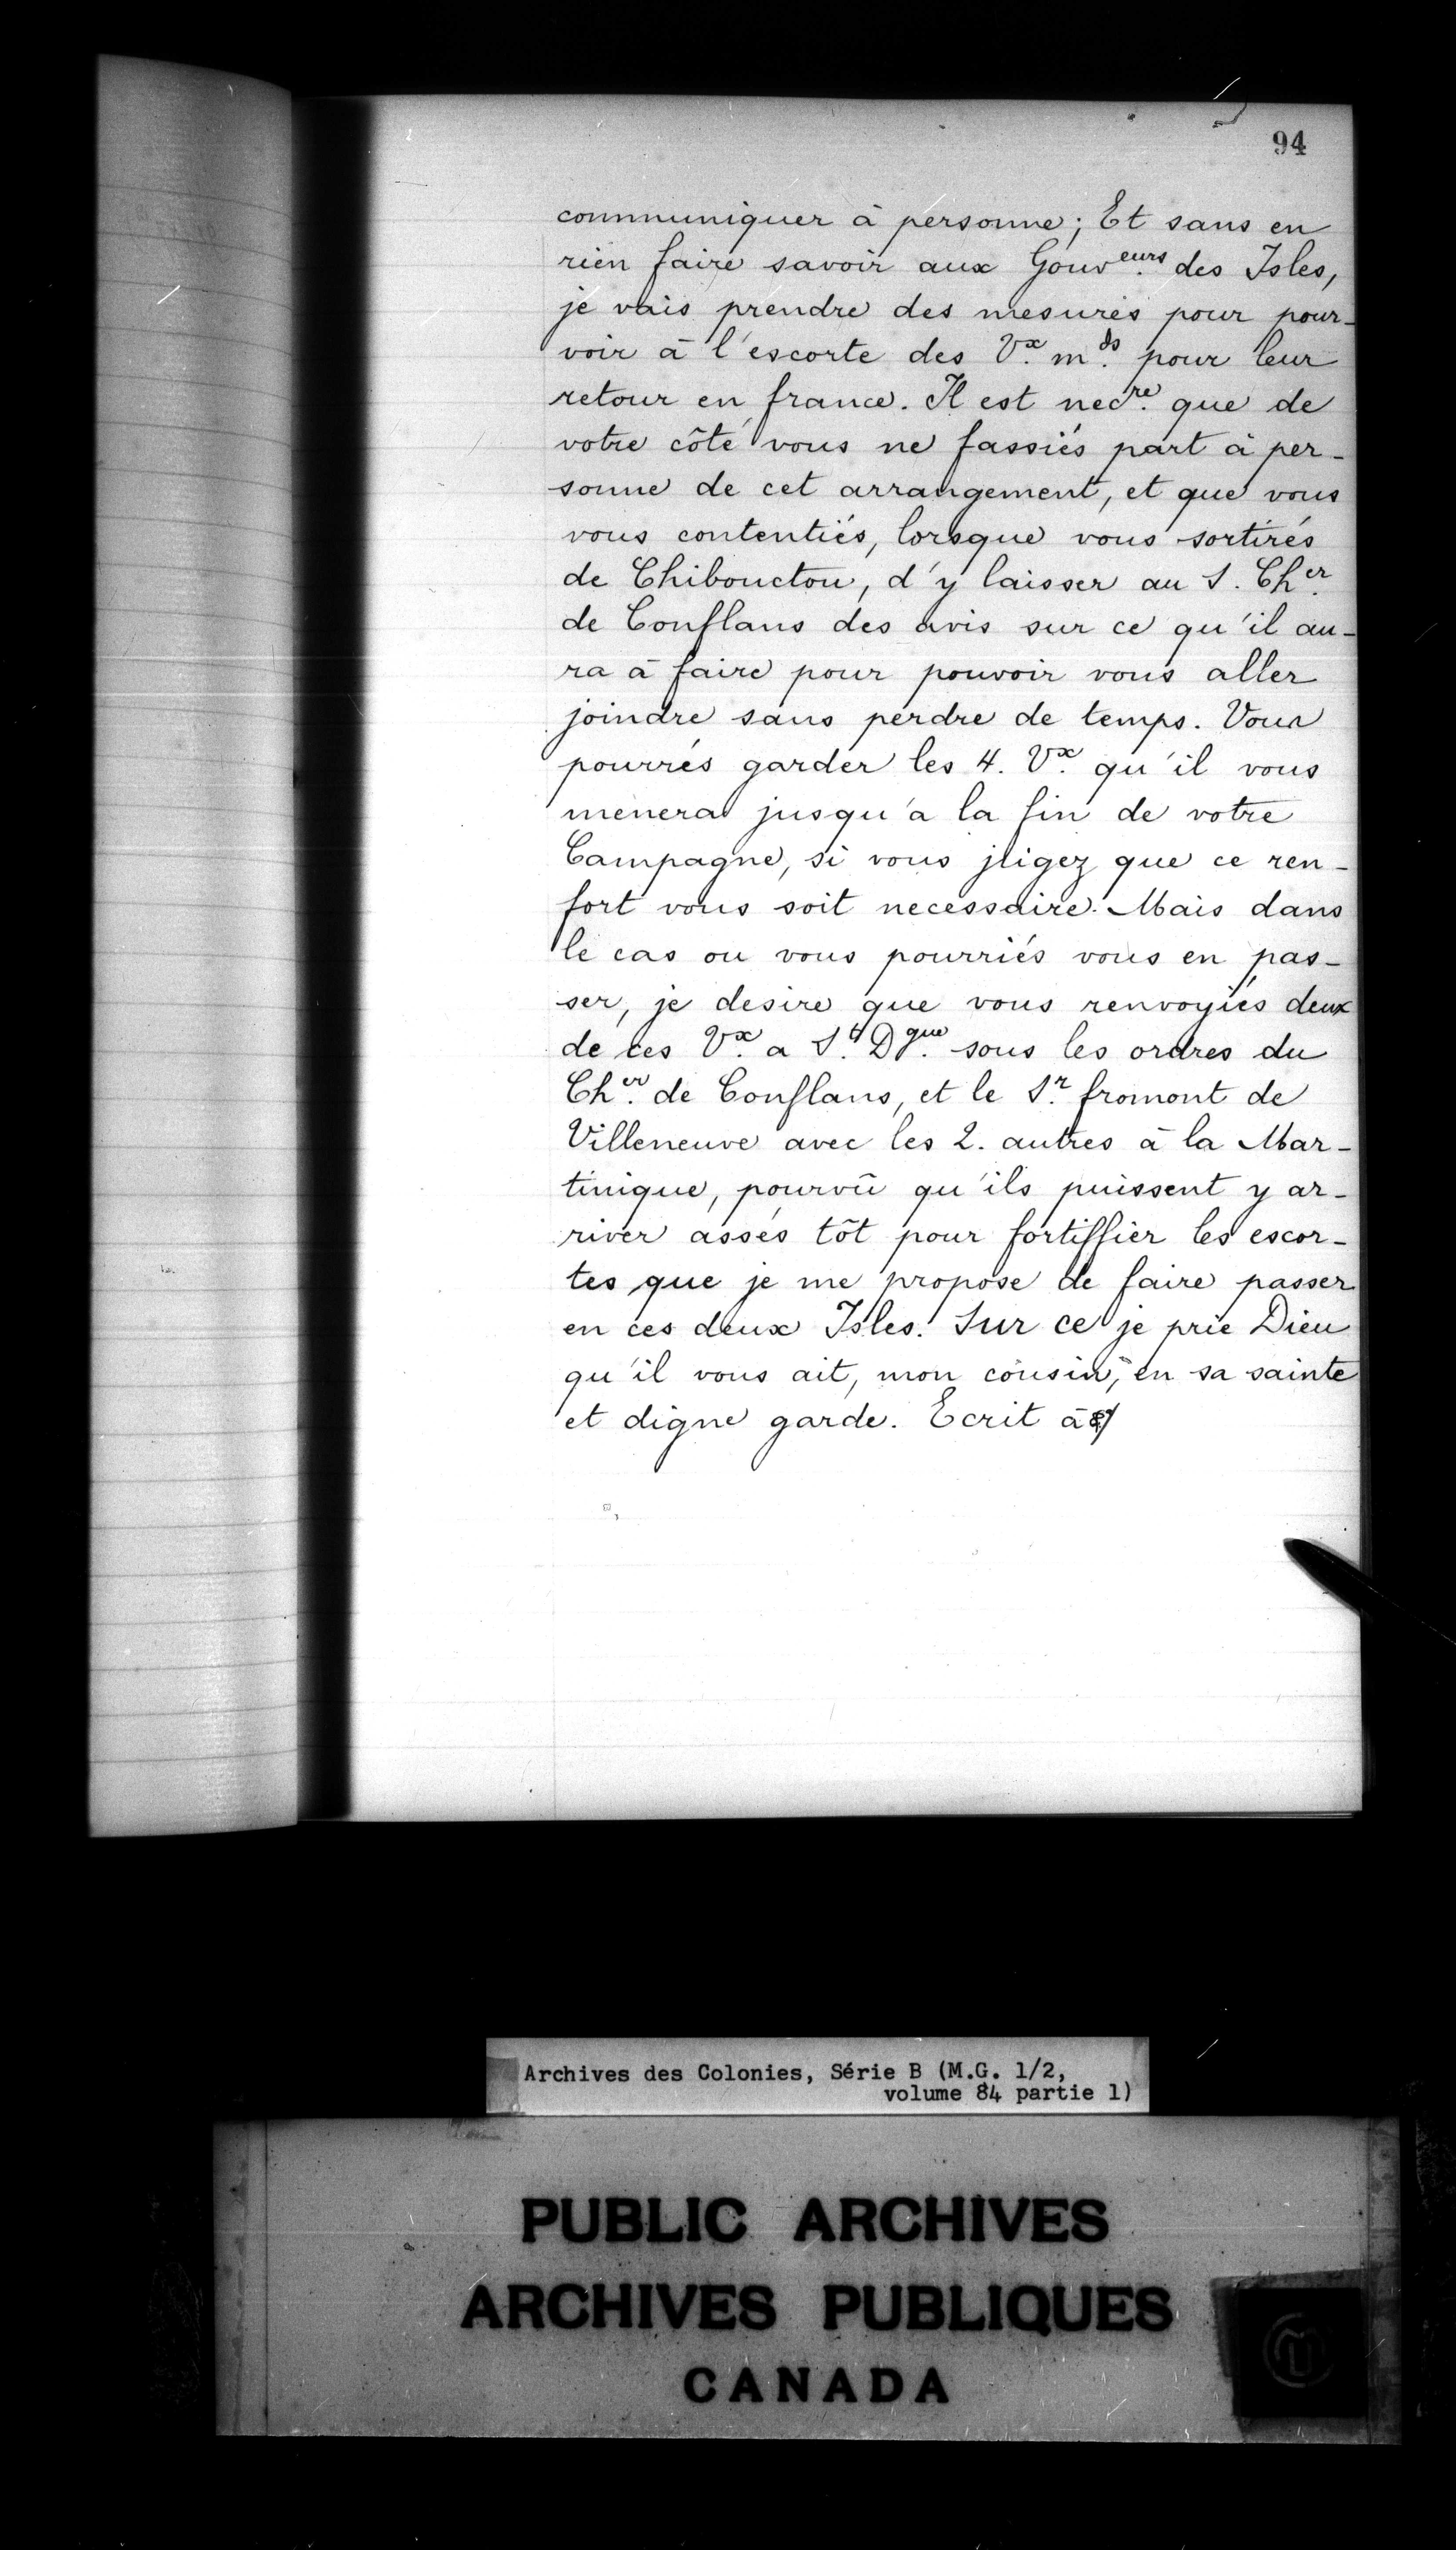 94
communiquer à personne; Et sans en
rien faire savoir aux Gouv.eurs des Isles,
je vais prendre des mesures pour pour-
voir à l'escorte des V.x m.ds pour leur
retour en france. Il est nec.re que de
votre côté vous ne fassiés part à per-
sonne de cet arrangement, et que vous
vous contentiés, lorsque vous sortirés
de Chibouctou, d'y laisser au S. Ch.er
de Conflans des avis sur ce qu'il au-
ra à faire pour pouvoir vous aller
joindre sans perdre de temps. Vous
pourrés garder les 4. V.x qu'il vous
menera jusqu'a la fin de votre
Campagne, si vous jugez que ce ren-
fort vous soit necessaire. Mais dans
le cas ou vous pourriés vous en pas-
ser, je desire que vous renvoyiés deux
de ces V.x a S.t D.gue sous les ordres du
Ch.er de Conflans, et le S.r fromont de
Villeneuve avec les 2. autres à la Mar-
tinique, pourvû qu'ils puissent y ar-
river assés tôt pour fortiffier les escor-
tes que je me propose de faire passer
en ces deux Isles. Sur ce je prie Dieu
qu'il vous ait, mon cousin, en sa sainte
et digne garde. Ecrit à
Archives des Colonies, Série B (M.G. 1/2,
volume 84 partie 1)
PUBLIC ARCHIVES
ARCHIVES PUBLIQUES
CANADA